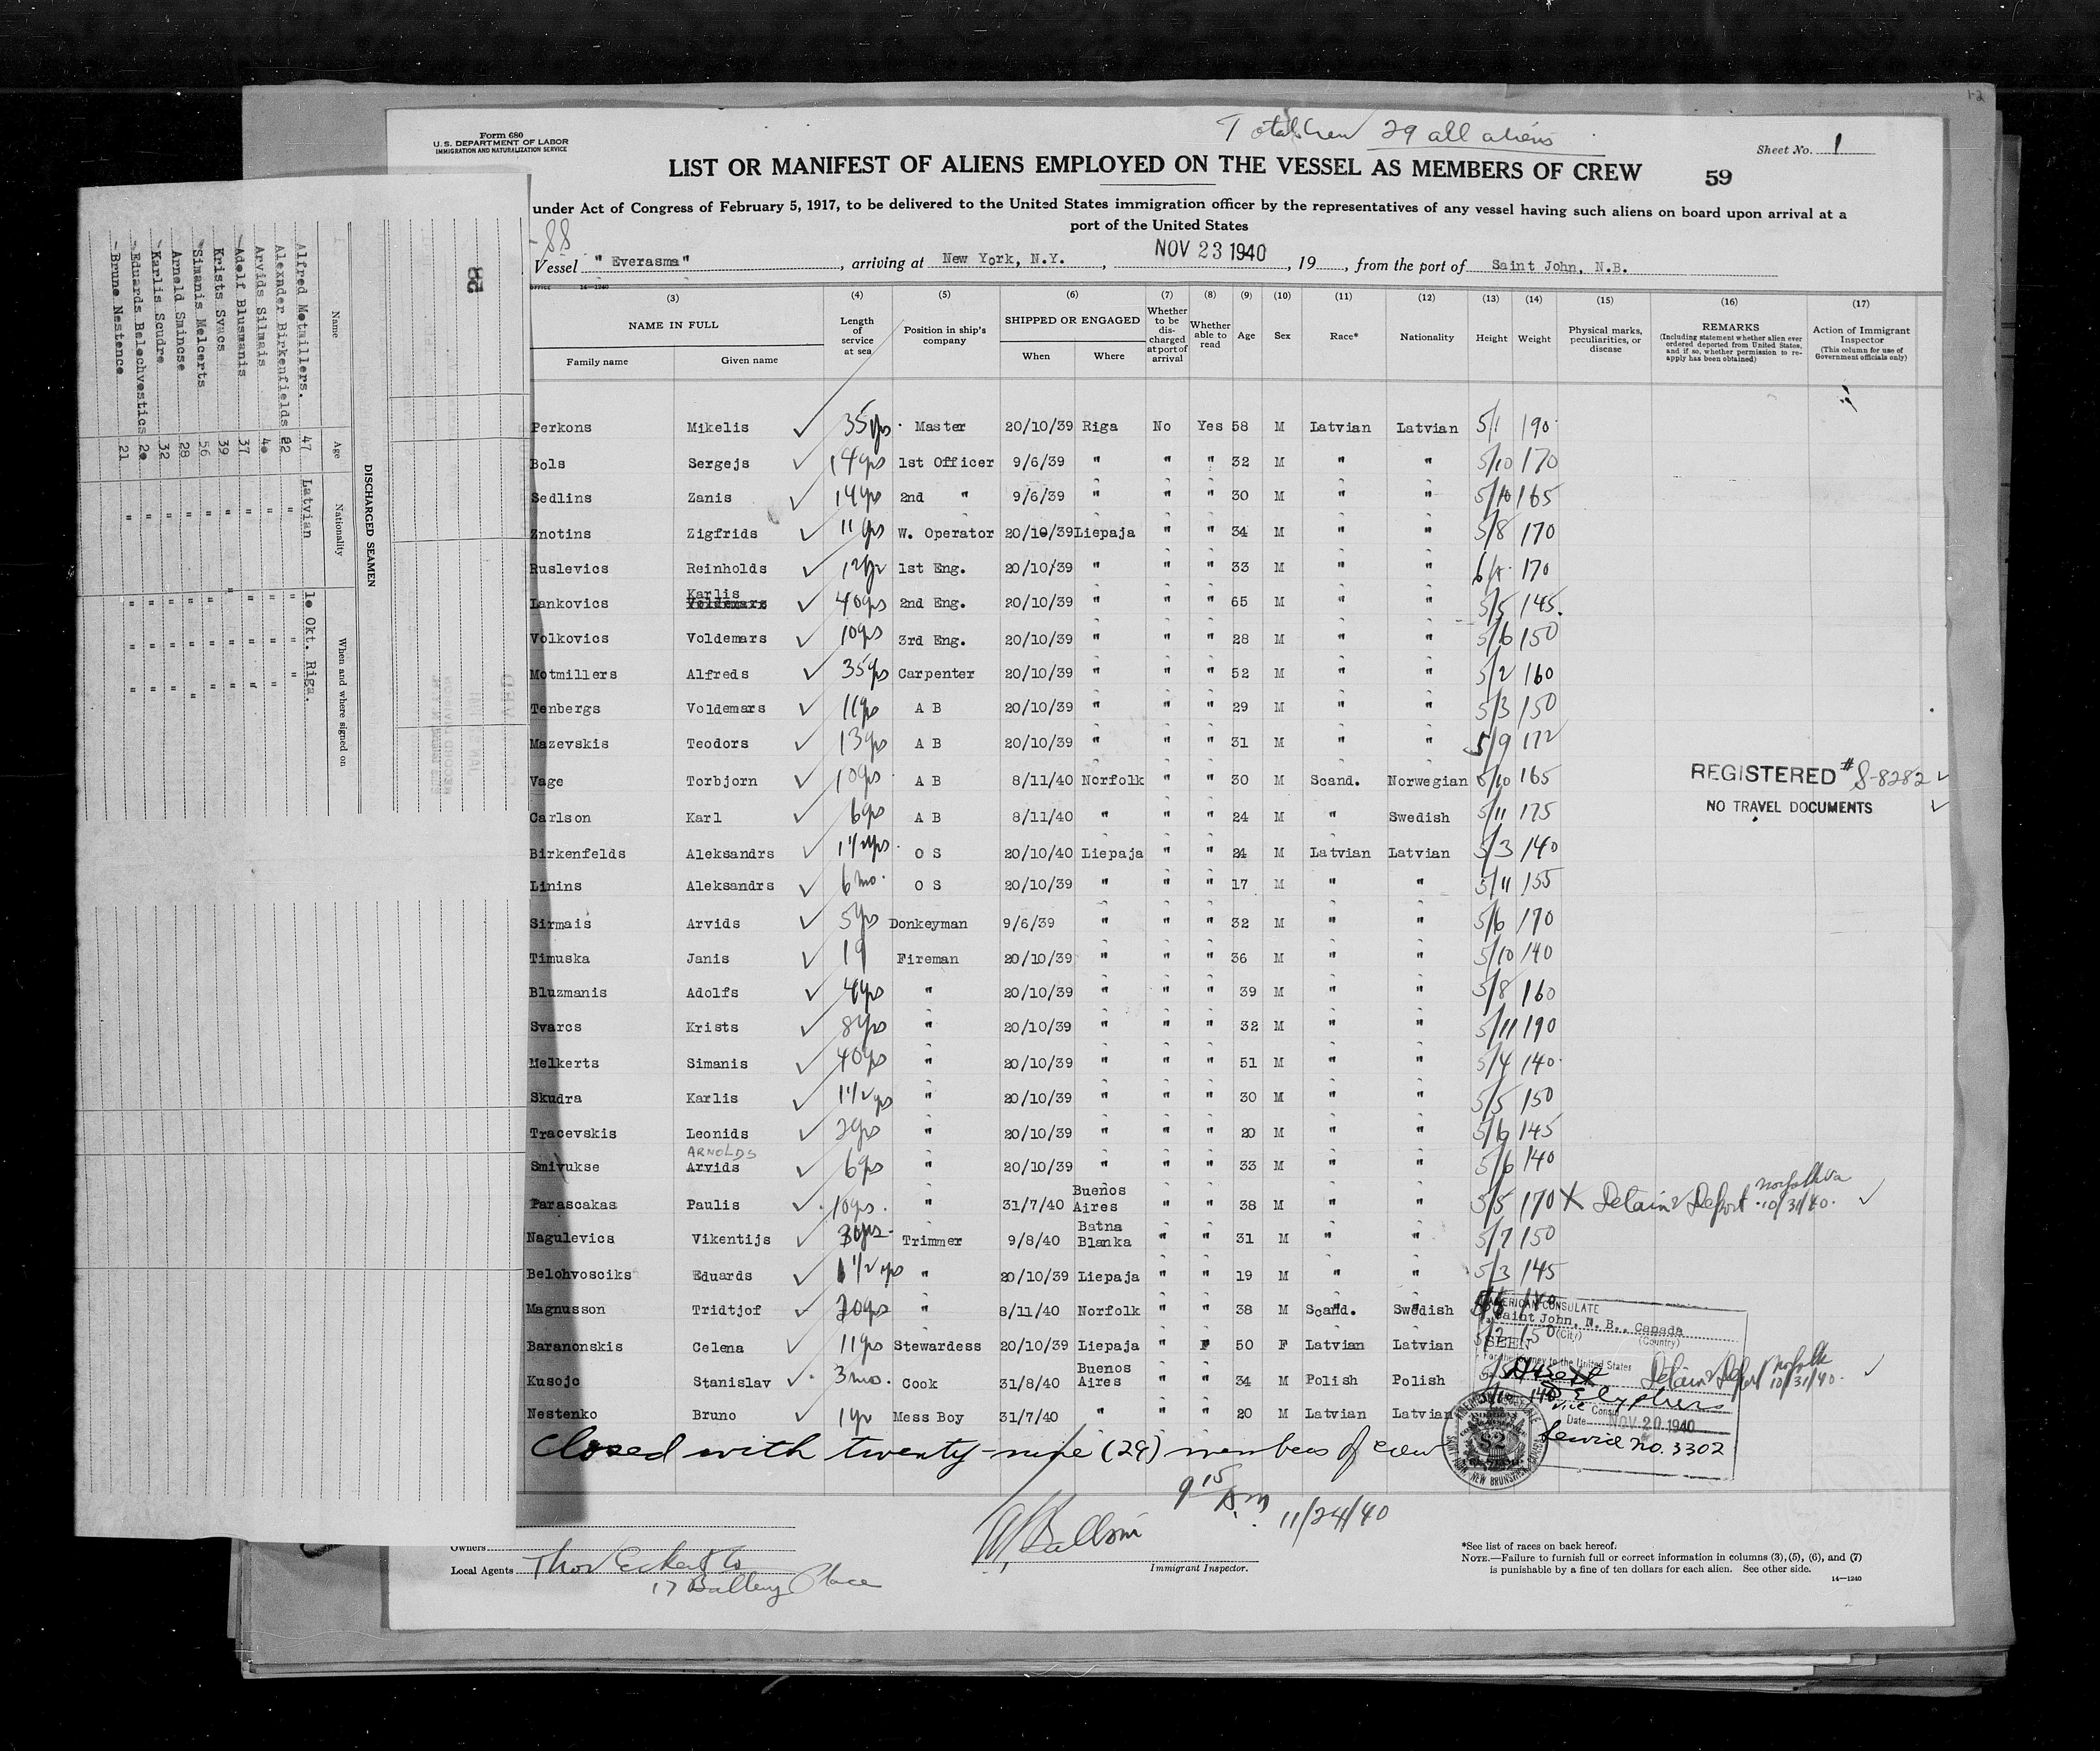 Total Crew 29 all aliens
Form 680
U.S. DEPARTMENT OF LABOR
IMMIGRATION AND NATURALIZATION SERVICE
Sheet No. 1
LIST OR MANIFEST OF ALIENS EMPLOYED ON THE VESSEL AS MEMBERS OF CREW
59
under Act of Congress of February 5, 1917, to be delivered to the United States immigration officer by the representatives of any vessel having such aliens on board upon arrival at a
port of the United States
-88
Vessel "Everasma", arriving at New York, N.Y., NOV 23 1940, 19, from the port of Saint John, N.B.
(3) (4) (5) (6) (7) (8) (9) (10) (11) (12) (13) (14) (15) (16) (17)
NAME IN FULL
Family name Given name
Length of service at sea
Position in ship's company
SHIPPED OR ENGAGED
When Where
Whether to be discharged at port of arrival
Whether able to read
Age
Sex
Race*
Nationality
Height
Weight
Physical marks, peculiarities, or disease
REMARKS
(Including statement whether alien ever ordered deported from United States, and if so, whether permission to reapply has been obtained)
Action of Immigrant Inspector
(This column for use of Government officials only)
Perkons Mikelis ✓ 35yrs Master 20/10/39 Riga No Yes 58 M Latvian Latvian 5/1 190
Bols Sergejs ✓ 14yrs 1st Officer 9/6/39 " " " 32 M " " 5/10 170
Sedlins Zanis ✓ 14yrs 2nd " 9/6/39 " " " 30 M " " 5/10 165
Znotins Zigfrids ✓ 11yrs W. Operator 20/10/39 Liepaja " " 34 M " " 5/8 170
Ruslevics Reinholds ✓ 12yr 1st Eng. 20/10/39 " " " 33 M " " 170
Lankovics Karlis Voldemars ✓ 40yrs 2nd Eng. 20/10/39 " " " 65 M " " 5/5 145
Volkovics Voldemars ✓ 10yrs 3rd Eng. 20/10/39 " " " 28 M " " 5/6 150
Motmillers Alfreds ✓ 35yrs Carpenter 20/10/39 " " " 52 M " " 5/2 160
Tenbergs Voldemars ✓ 11yrs A B 20/10/39 " " " 29 M " " 5/3 150
Mazevskis Teodors ✓ 13yrs A B 20/10/39 " " " 31 M " " 5/9 172
Vage Torbjorn ✓ 10yrs A B 8/11/40 Norfolk " " 30 M Scand. Norwegian 5/10 165 REGISTERED # S-8282 ✓
NO TRAVEL DOCUMENTS ✓
Carlson Karl ✓ 6yrs A B 8/11/40 " " " 24 M " Swedish 5/11 175
Birkenfelds Aleksandrs ✓ 1 1/2 yrs O S 20/10/40 Liepaja " " 24 M Latvian Latvian 5/3 140
Linins Aleksandrs ✓ 6 mo. O S 20/10/39 " " " 17 M " " 5/11 155
Sirmais Arvids ✓ 5yrs Donkeyman 9/6/39 " " " 32 M " " 5/6 170
Timuska Janis ✓ 19 Fireman 20/10/39 " " " 36 M " " 5/10 140
Bluzmanis Adolfs ✓ 4yrs " 20/10/39 " " " 39 M " " 5/8 160
Svarcs Krists ✓ 8yrs " 20/10/39 " " " 32 M " " 5/11 190
Melkerts Simanis ✓ 40yrs " 20/10/39 " " " 51 M " " 5/4 140
Skudra Karlis ✓ 1 1/2 yrs " 20/10/39 " " " 30 M " " 5/5 150
Tracevskis Leonids ✓ 2yrs " 20/10/39 " " " 20 M " " 5/6 145
Smivukse ARNOLDS Arvids ✓ 6yrs " 20/10/39 " " " 33 M " " 5/6 140
Parascakas Paulis ✓ 10yrs. " 31/7/40 Buenos Aires " " 38 M " " 5/5 170 X Detain & Deport Norfolk Va 10/31/40. ✓
Nagulevics Vikentijs ✓ Trimmer 9/8/40 Batna Blanka " " 31 M " " 5/7 150
Belohvosciks Eduards ✓ 1 1/2 yrs " 20/10/39 Liepaja " " 19 M " " 5/3 145
Magnusson Tridtjof ✓ " 8/11/40 Norfolk " " 38 M Scand. Swedish
Baranonskis Celena ✓ 11yrs Stewardess 20/10/39 Liepaja " 50 F Latvian Latvian 5/2 150
Kusojc Stanislav ✓ 3 mo. Cook 31/8/40 Buenos Aires " " 34 M Polish Polish Detain & Deport Norfolk 10/31/40. ✓
Nestenko Bruno ✓ 1yr Mess Boy 31/7/40 " " " 20 M Latvian Latvian 140
AMERICAN CONSULATE
Saint John, N. B., Canada
(City) (Country)
SEEN
For the journey to the United States
Vice Consul
Date NOV 20 1940
Service No. 3302
Closed with twenty-nine (29) members of crew
9 15 AM 11/24/40
Immigrant Inspector.
Owners
Local Agents Thor Eckert & Co
17 Battery Place
*See list of races on back hereof.
NOTE.—Failure to furnish full or correct information in columns (3), (5), (6), and (7)
is punishable by a fine of ten dollars for each alien. See other side.
14—1240
DISCHARGED SEAMEN
Name Age Nationality When and where signed on
Alfred Motmillers. 47 Latvian 1o Okt. Riga.
Alexnder Birkenfields 22 " " " "
Arvids Silmais 4o " " " "
Adolf Blusmanis 37 " " " "
Krists Svacs 39 " " " "
Simanis Melcerts 56 " " " "
Arnold Smincse 28 " " " "
Karlis Scudre 32 " " " "
Eduards Belochvostics 2o " " " "
Brune Nestence 21 " " " "